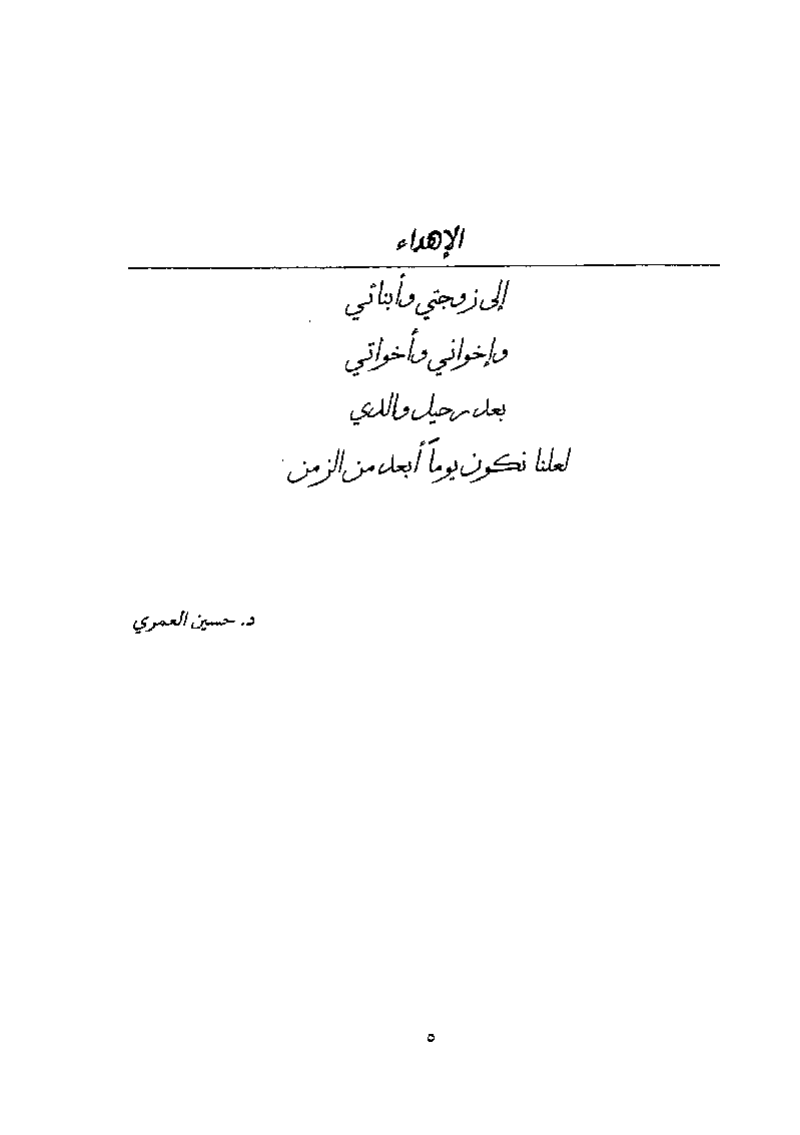 الإهداء
إلى زوجتي وأبنائي
وإخواني وأخواتي
بعد رحيل والدي
لعلنا نكون يوماً أبعد من الزمن
د. حسين العمري
٥